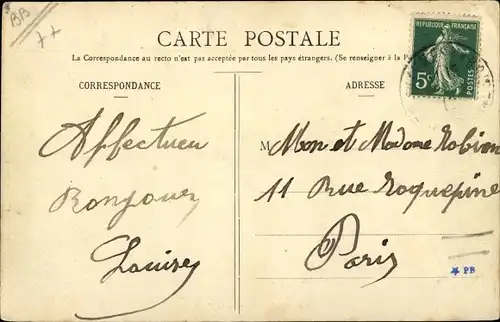 BB
CARTE POSTALE
La Correspondance au recto n'est pas acceptée par tous les pays étrangers. (Se renseigner à la P
CORRESPONDANCE
ADRESSE
REPUBLIQUE FRANÇAISE
5c
POSTES
Affectueu
Bonjour
Louise
M Mon et Madame Robien
11 Rue Roquepine
Paris
PB